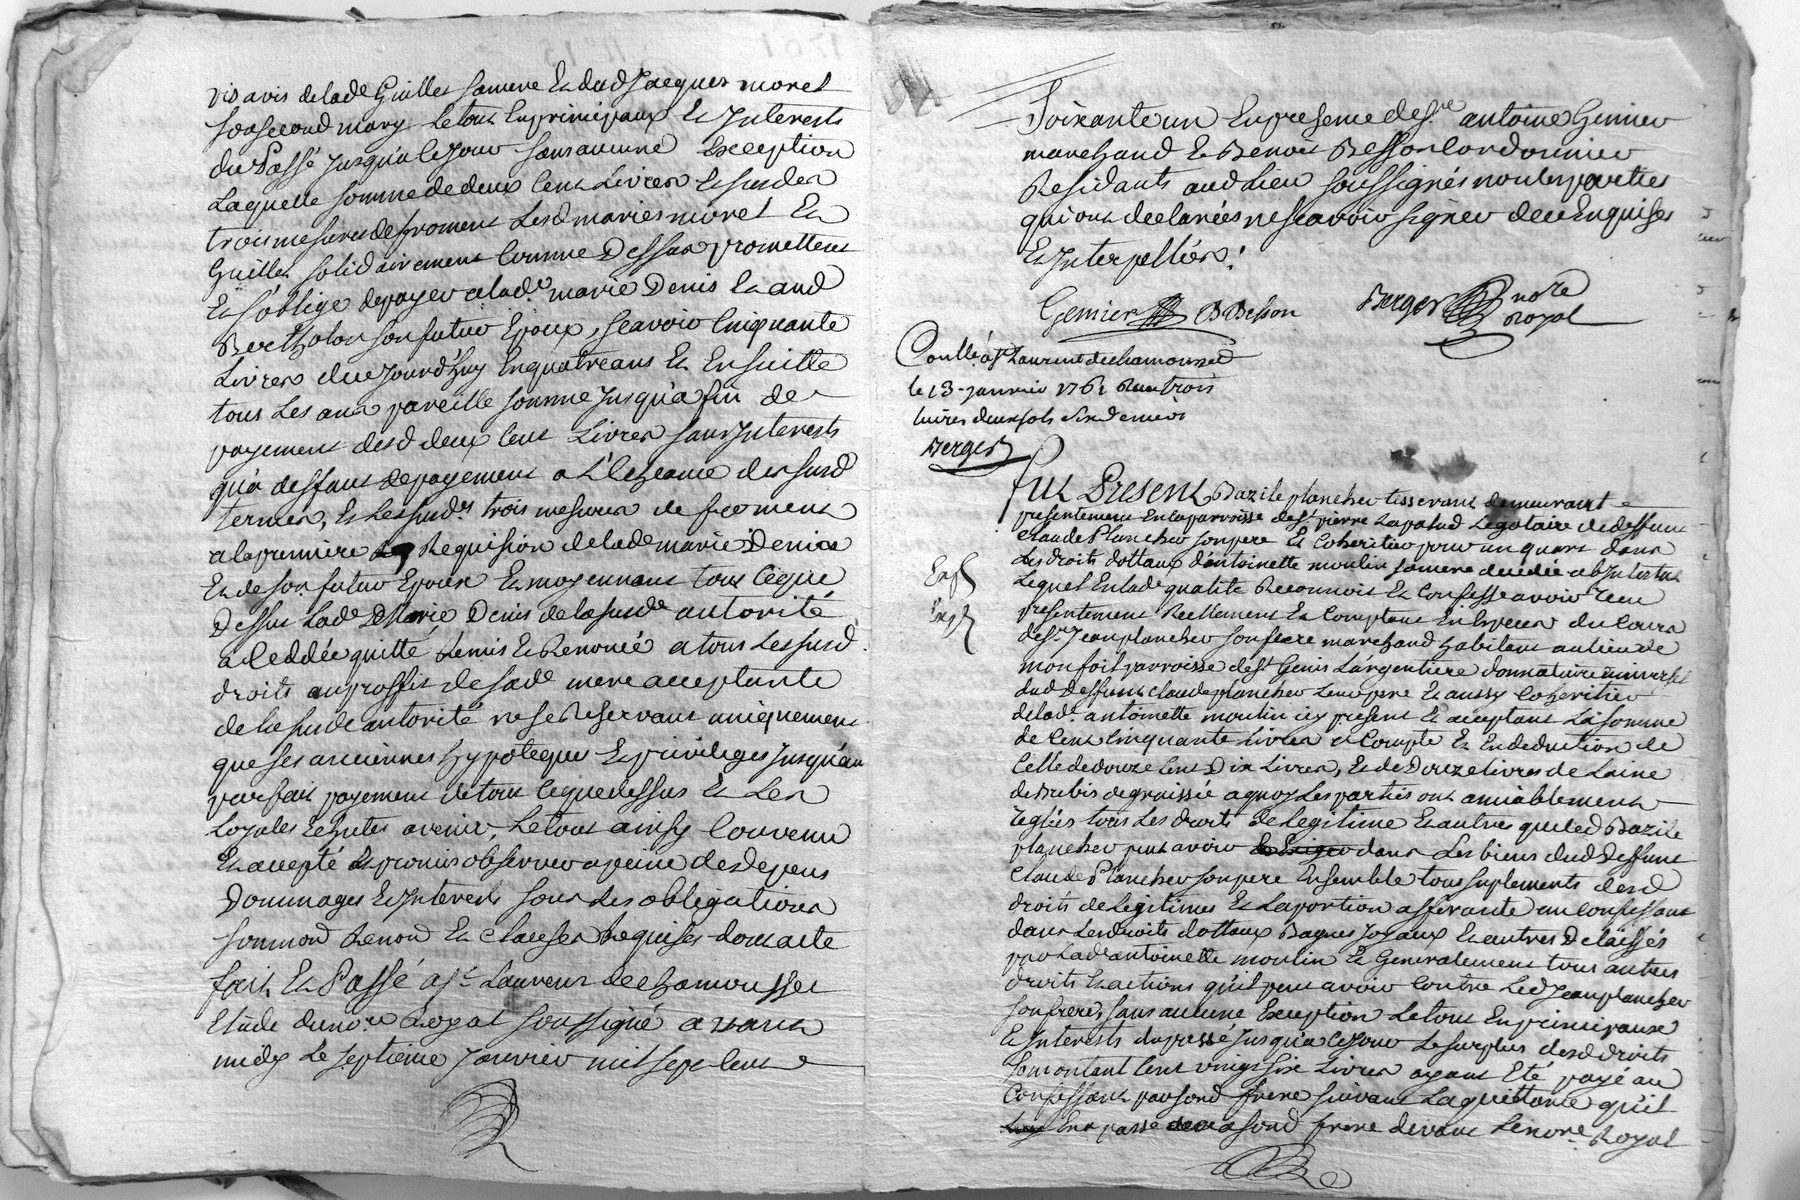 vis avis de lade Guillet sa mere Et dud Jacques moret
son second mary Le tout En principaux Et Interests
du Passé Jusqu'a ce Jour sans aucune Exception
Laquelle somme de deux Cent Livres Et susdes
trois mesures de froment Lesd maries moret Et
Guillet solidairement Comme Dessus promettent
Et s'oblige de payer a lade marie Denis Et aud
Bertholon son futur Epoux, scavoir Cinquante
Livres de ce Jourd'huy En quatre ans Et Ensuitte
tous Les ans pareille somme Jusqu'a fin de
payement desd deux Cent Livres sans Interests
qu'a deffaut de payement a L'Echeance des susd
termes, Et Les susdes trois mesures de froment
a la premiere Requision de lade marie Denis
Et de son futur Epoux Et moyennant tout Ceque
Dessus Lade Marie Denis de la susde autorité
a Ceddée quitté Remis Et Renoncé a tous Les susd
droits au proffit de sade mere acceptante
de la susde autorité ne se Reservant uniquement
que ses anciennes hypoteques Et privileges Jusqu'au
parfait payement de tout Ceque dessus Et Les
Loyales Echutes avenir, Le tout ainsy Convenu
Et accepté Et promis observer a peine de Depens
Dommages Et Interests sous Les obligations
Renon Et Clauses Requises dont acte
fait Et Passé a St Laurent de chamousset
Etude du nore Royal soussigné avant
midy Le septieme Janvier mil sept Cent
Soixante un En presence de Sre antoine Genier
marchand Et Benoit Besson Cordonnier
Residants aud Lieu soussignés non Les parties
qui ont declarées ne scavoir signer de ce Enquises
Et Interpellées!
Genier BBesson Berger nore
Royal
Conllé a St Laurent de chamousset
le 13 janvier 1761 Reçu trois
livres deux sols six deniers
Berger
Fut Present, Bazile plancher tisserant demeurant
presentement En la parroisse de St pierre La palud Legataire de deffunt
Claude Plancher son pere Et Coheritier pour un quart dans
Les droits dottaux d'antoinette moulin sa mere decedée ab Intestat
Lequel En lade qualité Reconnoit Et Confesse avoir reçu
Exp
Exp
presentement Reellement Et Comptant En Especes du Cours
de Sr Jean plancher son frere marchand habitant au lieu de
monfort parroisse de St Genis L'argentiere donnataire universel
dud Deffunt Claude plancher Leur pere Et aussy Coheritier
de lade antoinette moulin icy present Et acceptant La somme
de Cent Cinquante Livres a Compte Et En deduction de
Celle de douze Cent Dix Livres, Et de Douze livres de Laine
de Brebis degraissié a quoy Les parties ont amiablement
reglées tous Les droits de Legitime Et autres que led Bazile
plancher peut avoir dans Les biens dud Deffunt
Claude Plancher son pere Ensemble tous suplements desd
droits de Legitimes Et La portion afferante au Confessant
dans Les droits dottaux Bagues Joyaux Et autres Delaissés
par Lad antoinette moulin Et Generalement tous autres
droits Et actions qu'il peut avoir Contre Led Jean plancher
son frere, sans aucune Exception Le tout En principaux
Et Interests du passé Jusqu'a ce Jour Le surplus desd droits
Se montant Cent vingt six Livres ayant Eté payé au
Confessant par sond frere suivant La quittance qu'il
En a passé a sond frere devant Le nore Royal